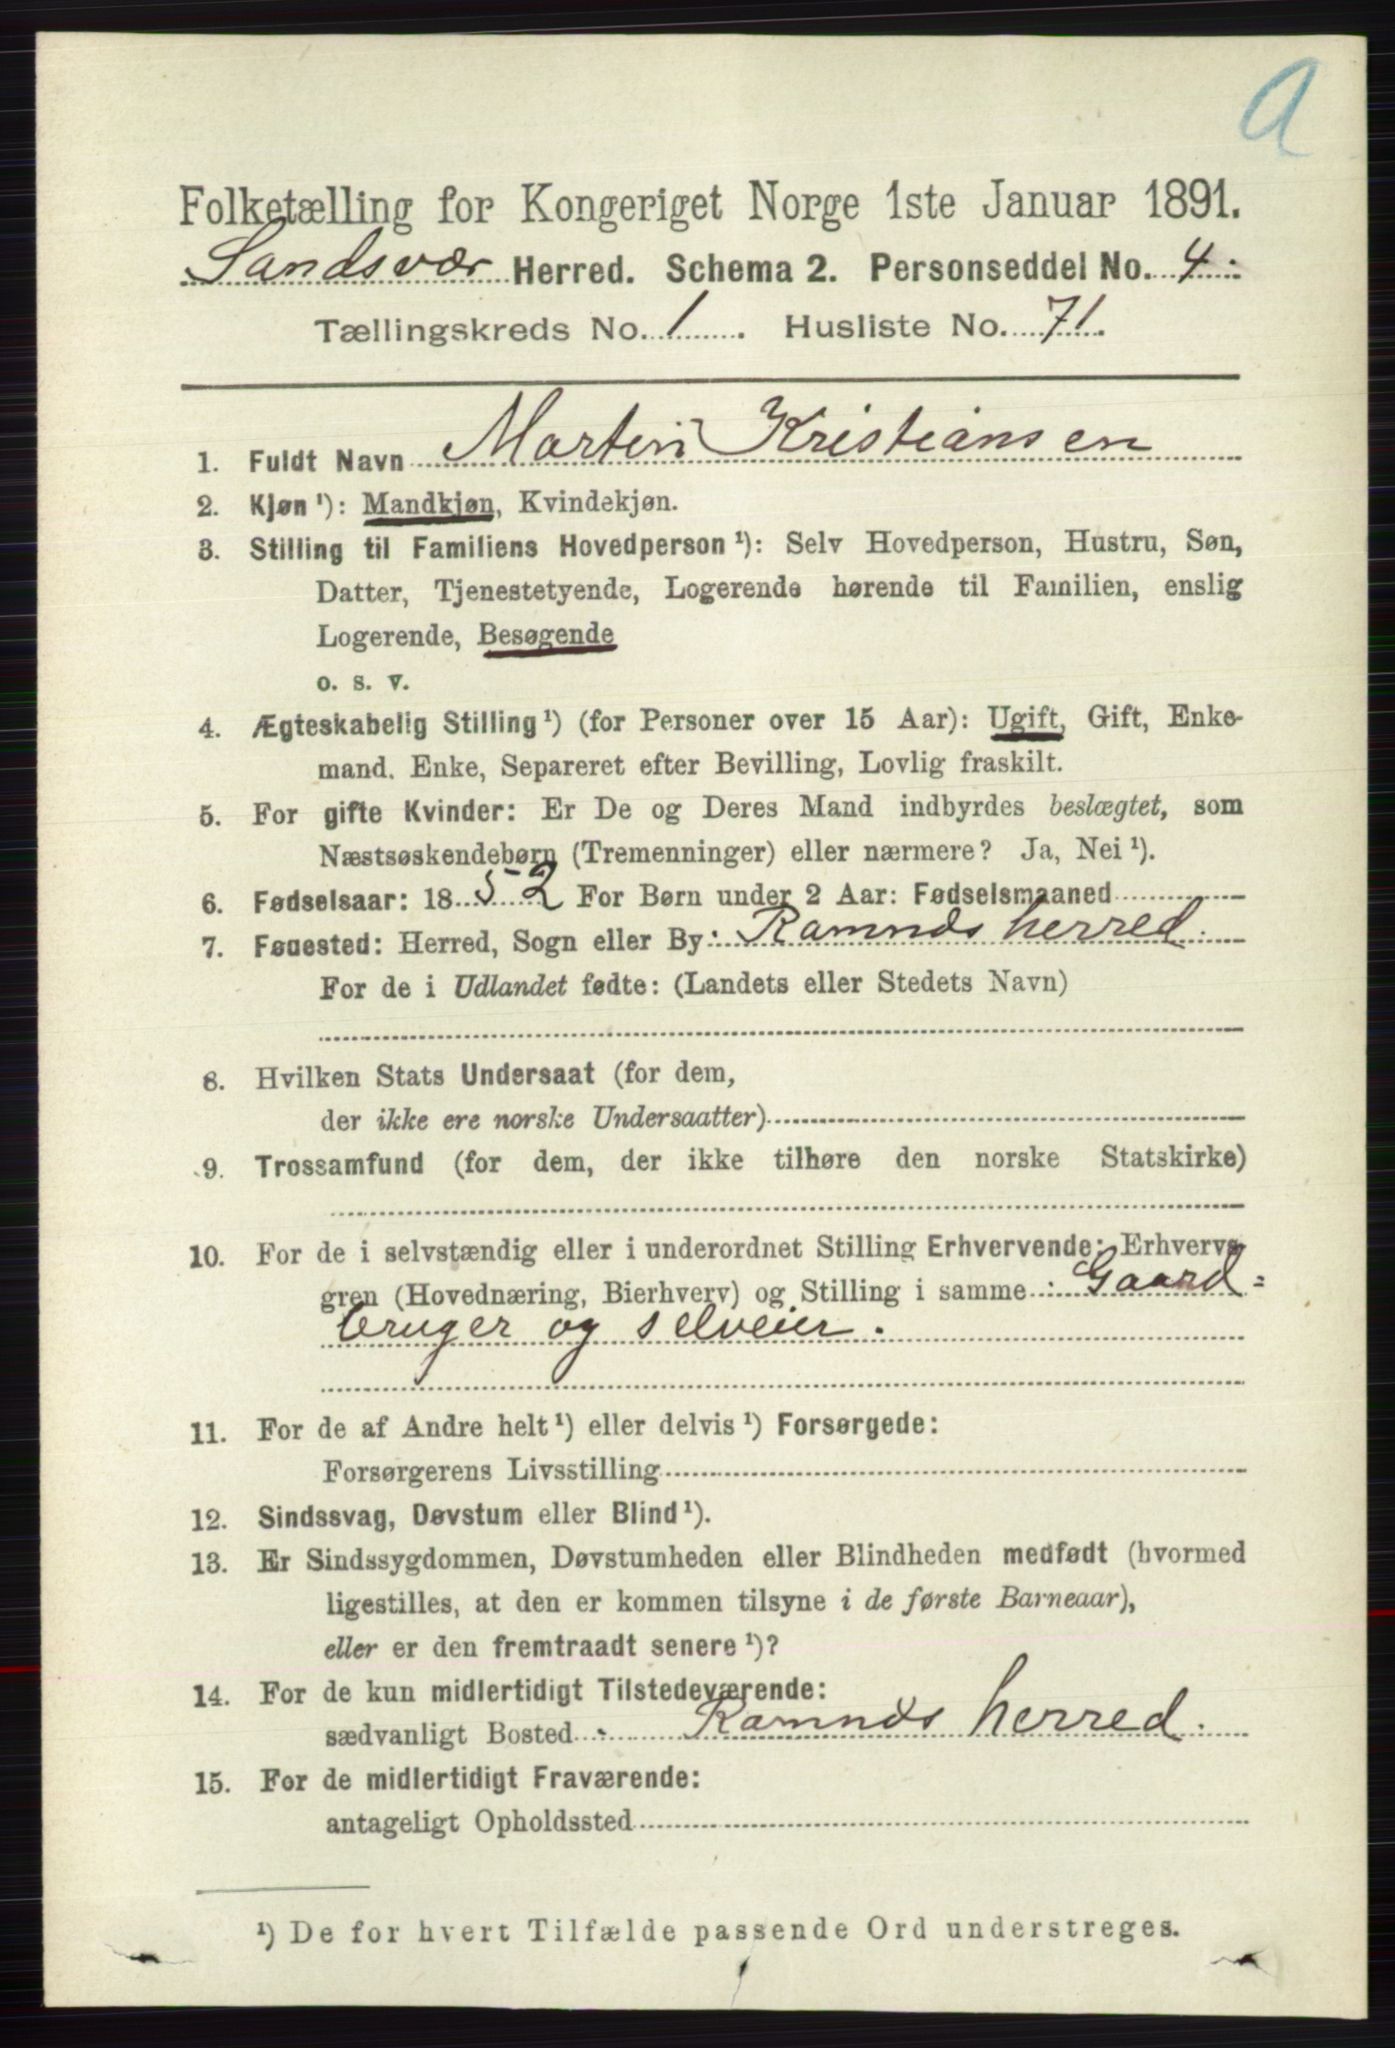 a
Folketælling for Kongeriget Norge 1ste Januar 1891.
Sandsvær Herred. Schema 2. Personseddel No. 4.
Tællingskreds No. 1. Husliste No. 71.
1. Fuldt Navn Martin Kristiansen
2. Kjøn ¹): Mandkjøn, Kvindekjøn.
3. Stilling til Familiens Hovedperson ¹): Selv Hovedperson, Hustru, Søn,
Datter, Tjenestetyende, Logerende hørende til Familien, enslig
Logerende, Besøgende
o. s. v.
4. Ægteskabelig Stilling ¹) (for Personer over 15 Aar): Ugift, Gift, Enke-
mand, Enke, Separeret efter Bevilling, Lovlig fraskilt.
5. For gifte Kvinder: Er De og Deres Mand indbyrdes beslægtet, som
Næstsøskendebørn (Tremenninger) eller nærmere? Ja, Nei ¹).
6. Fødselsaar: 1852 For Børn under 2 Aar: Fødselsmaaned
7. Føuested: Herred, Sogn eller By: Ramnds herred.
For de i Udlandet fødte: (Landets eller Stedets Navn)
8. Hvilken Stats Undersaat (for dem,
der ikke ere norske Undersaatter)
9. Trossamfund (for dem, der ikke tilhøre den norske Statskirke)
10. For de i selvstændig eller i underordnet Stilling Erhvervende: Erhvervs-
gren (Hovednæring, Bierhverv) og Stilling i samme : Gaard=
bruger og selveier.
11. For de af Andre helt ¹) eller delvis ¹) Forsørgede:
Forsørgerens Livsstilling
12. Sindssvag, Døvstum eller Blind ¹).
13. Er Sindssygdommen, Døvstumheden eller Blindheden medfødt (hvormed
ligestilles, at den er kommen tilsyne i de første Barneaar),
eller er den fremtraadt senere ¹)?
14. For de kun midlertidigt Tilstedeværende:
sædvanligt Bosted : Ramnds herred.
15. For de midlertidigt Fraværende:
antageligt Opholdssted
¹) De for hvert Tilfælde passende Ord understreges.